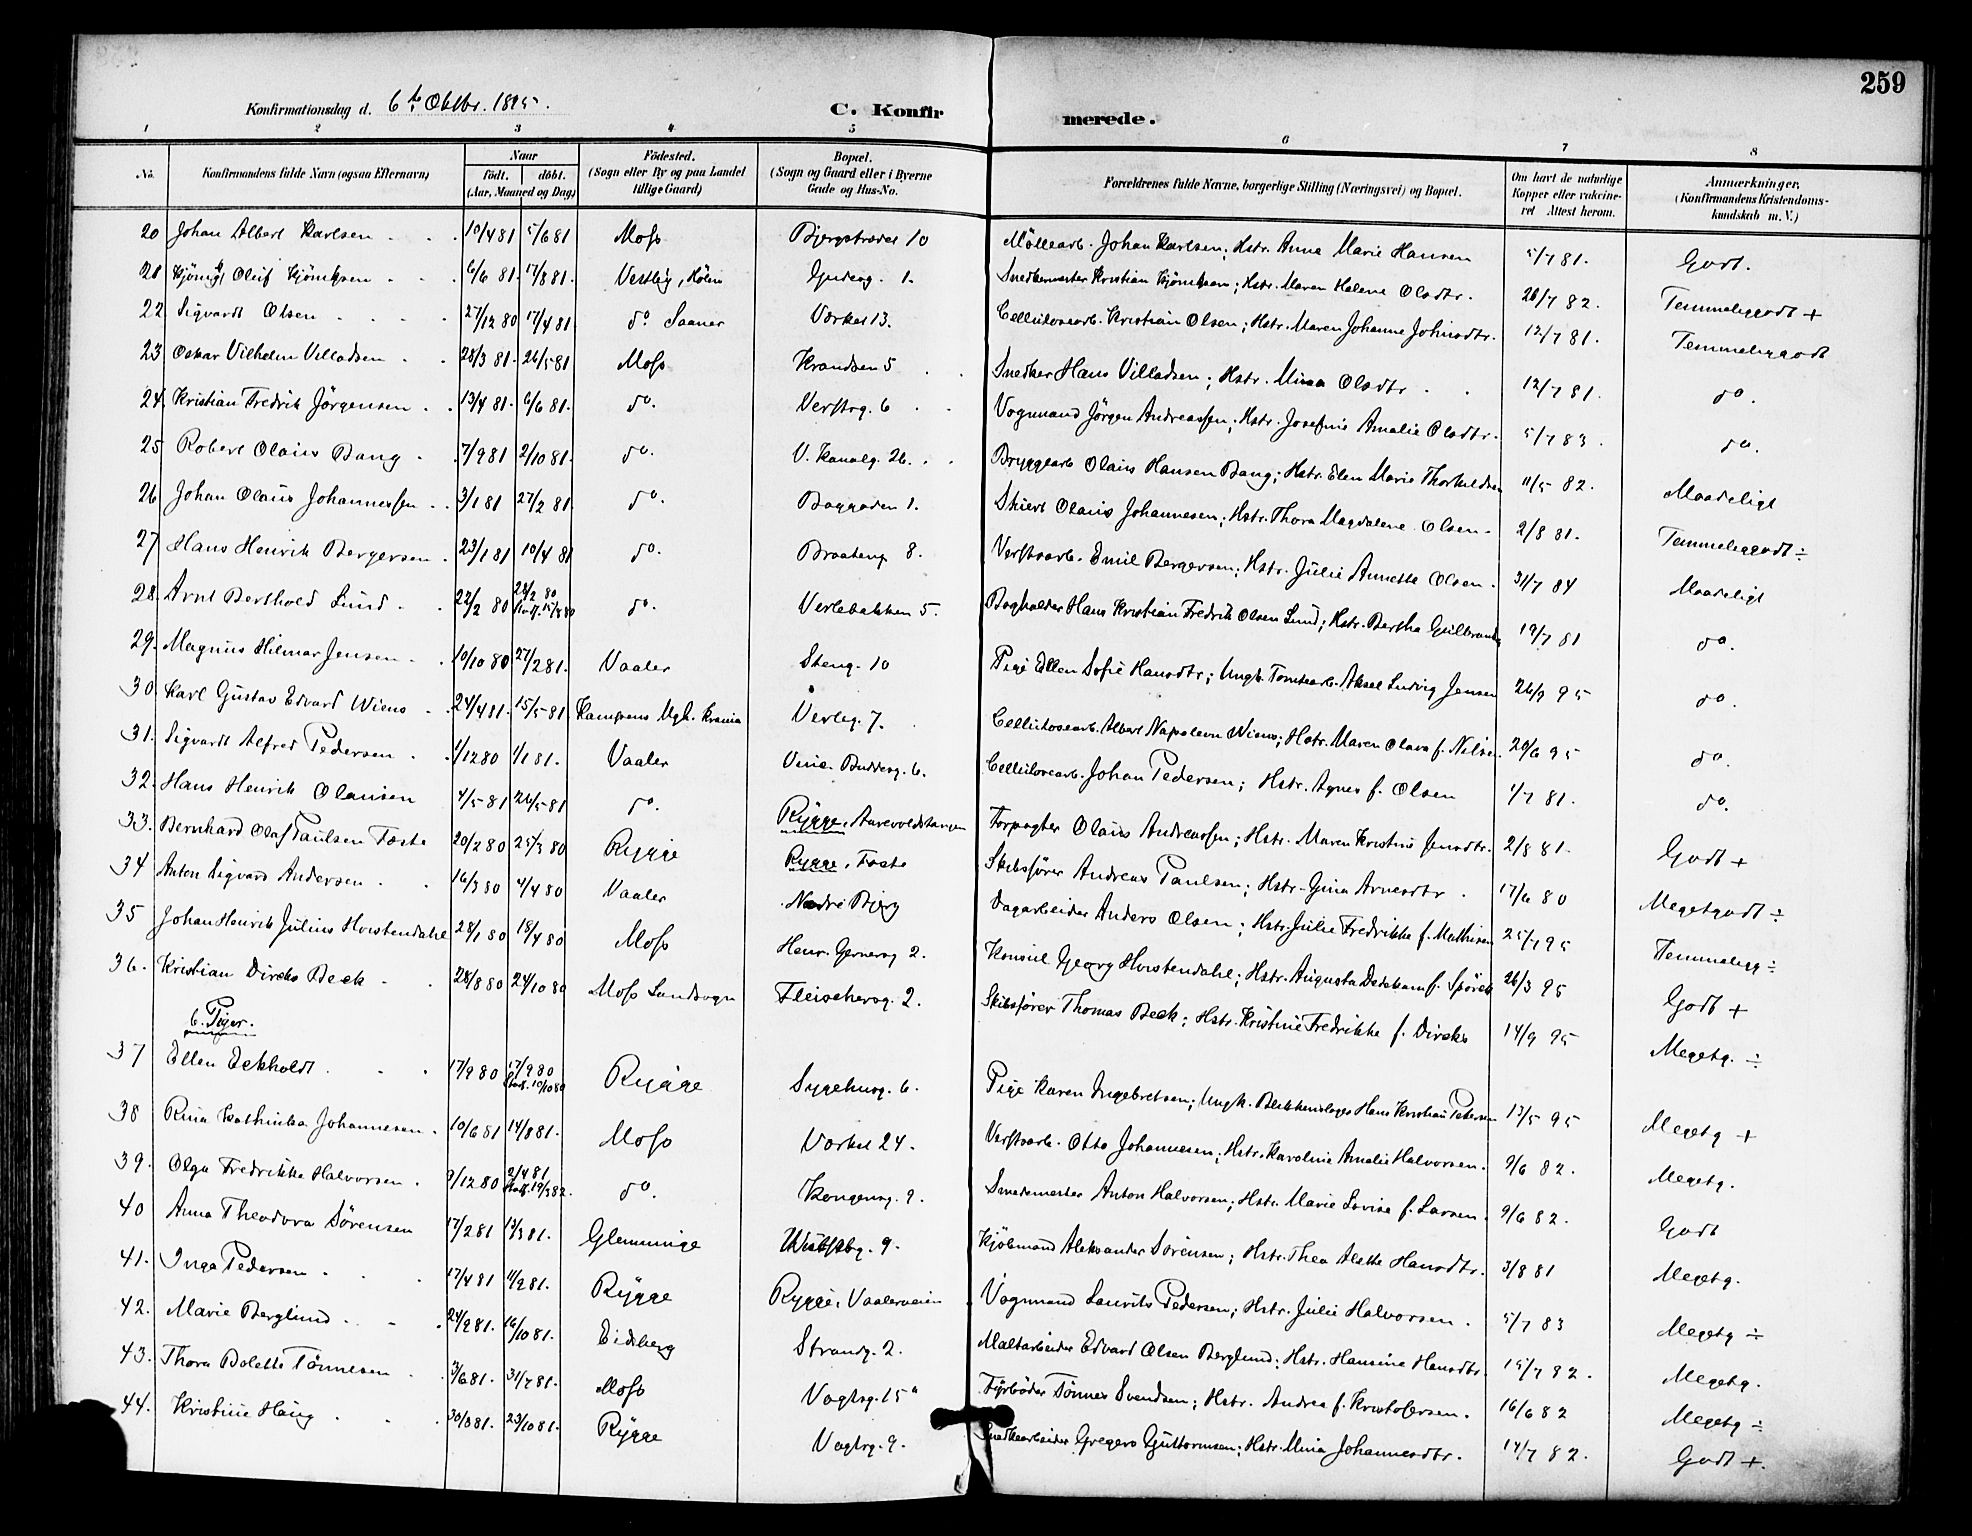 259
Konfirmationsdag d. 6te Oktbr. 1895.
C. Konfirmerede.
1 2 3 4 5 6 7 8
No. Konfirmandens fulde Navn (ogsaa Efternavn) Naar født. døbt. (Aar, Maaned og Dag) Fødested. (Sogn eller By og paa Landet tillige Gaard) Bopæl. (Sogn og Gaard eller i Byerne Gade og Hus-No. Forældrenes fulde Navne, borgerlige Stilling (Næringsvei) og Bopæl. Om havt de naturlige Kopper eller vakcineret Attest herom. Anmærkninger, (Konfirmandens Kristendomskundskab m. V.)
20 Johan Albert Karlsen 10/4 81 5/6 81 Moss Bjergstrædet 10 Möllearb. Johan Karlsen; Hstr. Anne Marie Hansen 5/7 81. Godt.
21 Oluf 6/6 81. 17/8 81. Vestby, 1. Snedkermester Kristian; Hstr. Maren Helene Olsdtr. 26/7 82. Temmeliggodt +
22 Sigvardt Olsen 27/12 80 17/4 81 do. Saaner Værket 13. Cellulosearb. Kristian Olsen; Hstr. Maren Johanne Johnsdtr. 12/7 81. Temmeliggodt
23 Oskar Vilhelm Villadsen 28/3 81. 26/5 81 Moss Krandsen 5 Snedker Hans Villadsen; Hstr. Mina Olsdtr 12/7 81. do.
24. Kristian Fredrik Jörgensen 13/4 81. 6/6 81. do. Verftsg. 6 Vognmand Jörgen Andreassen; Hstr. Josefine Amalie Olsdtr. 5/7 83. do.
25 Robert Olaus Bang 7/9 81 2/10 81. do. V. Kanalg. 26. Bryggearb Olaus Hansen Bang; Hstr. Elen Marie Thorkeldsen 11/5 82. Maadeligt
26 Johan Olaus Johannessen 3/1 81 27/2 81. do. Baggaden 1. Olaus Johannesen; Hstr. Thora Magdalene Olsen 2/8 81. Temmeliggodt ÷
27 Hans Henrik Bergersen 23/1 81 10/4 81 do. Braateng 8. Verftsarb. Emil Bergersen; Hstr. Julie Annette Olsen 31/7 84 Maadeligt
28. Arnt Berthold Lund 22/2 80 24/2 80 Stadf. 15/8 80 do. Verlebakken 5. Bogholder Hans Kristian Fredrik Olsen Lund; Hstr. Bertha 19/7 81 do.
29. Magnus Hilmar Jensen 10/10 80 27/2 81. Vaaler Steng. 10 Pige Ellen Sofie Hansdtr; Ungk. Tomtearb. Aksel Ludvig Jensen 26/9 95 do.
30. Karl Gustav Edvard Wiens 24/4 81. 15/5 81 Kampens Mgh. Krania Verleg. 7. Cellulosearb. Albert Napoleon Wiens; Hstr. Maren Olava f. Nilsen 20/6 95 do.
31. Sigvardt Alfred Pedersen 1/12 80 1/1 81. Vaaler Budderg. 6. Cellulosearb. Johan Pedersen; Hstr. Agnes f. Olsen 1/7 81. do.
32. Hans Henrik Olausen 4/5 81 26/5 81 do. Rygge, Aarevoldstangen Forpagter Olaus Andreassen; Hstr. Maren Kristine Jensdtr. 2/8 81. Godt +
33. Bernhard Olaf Paulsen Foste 20/2 80 25/3 80 Rygge Rygge, Foste Skibsfører Andreas Paulsen; Hstr. Gina Arnesdtr. 17/6 80 Megetgodt ÷
34 Anton Sigvard Andersen 16/3 80 4/4 80 Vaaler Nedre Bjerg Dagarbeider Anders Olsen; Hstr. Julie Fredrikke f. Mathisen 25/7 95 Temmeligg ÷
35 Johan Henrik Julius Horstendahl 28/1 80 18/4 80 Moss Henr. Gernersg 2. Konsul Georg Horstendahl; Hstr. Augusta f. 26/3 95 Godt +
36. Kristian Dircks Beck 28/8 80 24/10 80 Moss Landsogn Fleischersg. 2. Skibsfører Thomas Beck; Hstr. Kristine Fredrikke f. Dircks 14/9 95 Megetg. ÷
b. Piger.
37 Ellen Eckholdt 17/9 80 17/9 80 Stadf. 10/10 80 Rygge Sygehusg. 6. Pige Karen Ingebretsen; Ungk. Blikkenslager Hans Kristian Petersen 13/5 95 Megetg +
38 Rina Kathinka Johannesen 10/6 81 14/8 81. Moss Værket 24. Verftsarb. Otto Johannesen; Hstr. Karoline Amalie Halvorsen. 9/6 82. Megetg.
39. Olga Fredrikke Halvorsen 9/12 80 2/4 81 Stadf. 19/3 82. do. Kongensg. 9. Smedemester Anton Halvorsen; Hstr. Marie Lovise f. Larsen 9/6 82. Godt
40 Anna Theodora Sörensen 17/2 81 13/3 81. Glemminge 9. Kjöbmand Aleksander Sörensen; Hstr. Thea Alette Hansdtr. 3/8 81 Megetg.
41. Inga Pedersen 17/4 81 11/9 81. Rygge Rygge, Vaalerveien Vognmand Laurits Pedersen; Hstr. Julie Halvorsen. 5/7 83 Megetg ÷
42. Marie Berglund 24/9 81. 16/10 81. Eidsberg Strandg. 2. Maltarbeider Edvard Olsen Berglund; Hstr. Hansine Hansdtr. 15/7 82. Megetg.
43. Thora Bolette Tönnesen 3/6 81. 31/7 81. Moss Vogtsg. 15a Fyrböder Tönnes Svendsen; Hstr. Andrea f. Kristofersen. 16/6 82 Megetg ÷
44. Kristine Haug 30/8 81. 23/10 81. Rygge Vogtsg. 9. Gregers Guttormsen; Hstr. Mina Johannesdtr. 14/7 82. Godt +.